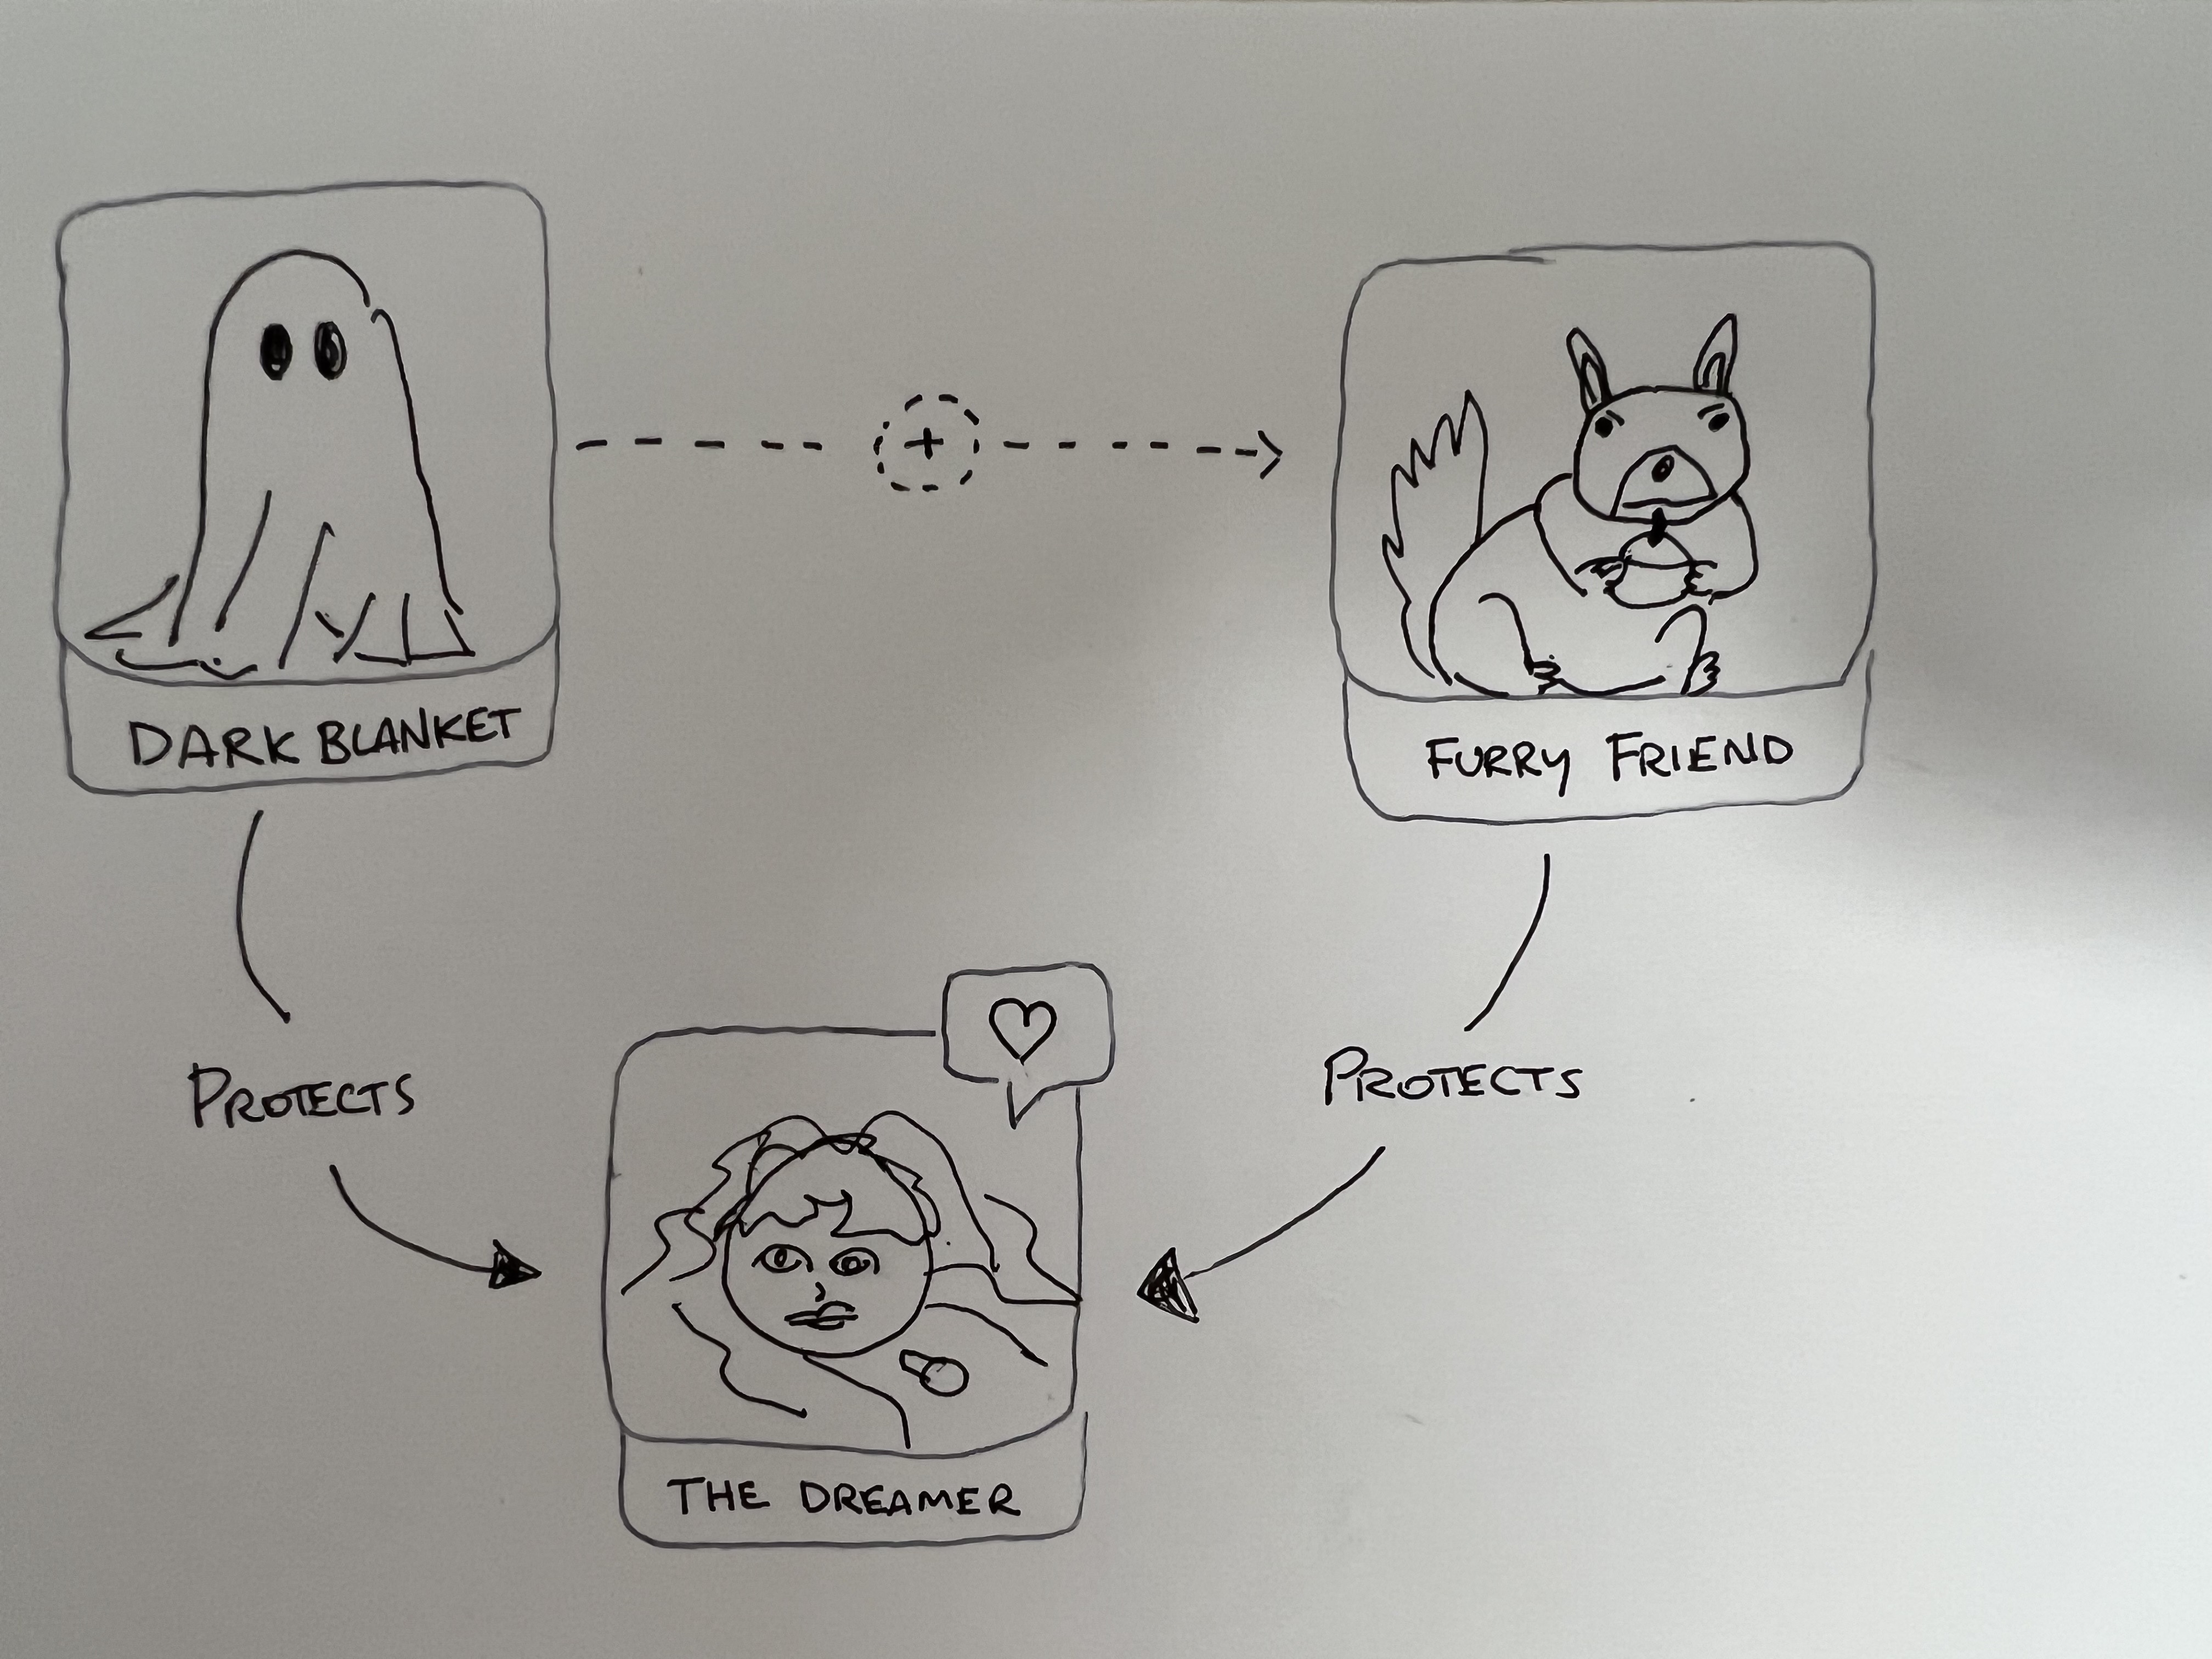 DARK BLANKET
+
FURRY FRIEND
PROTECTS
PROTECTS
THE DREAMER